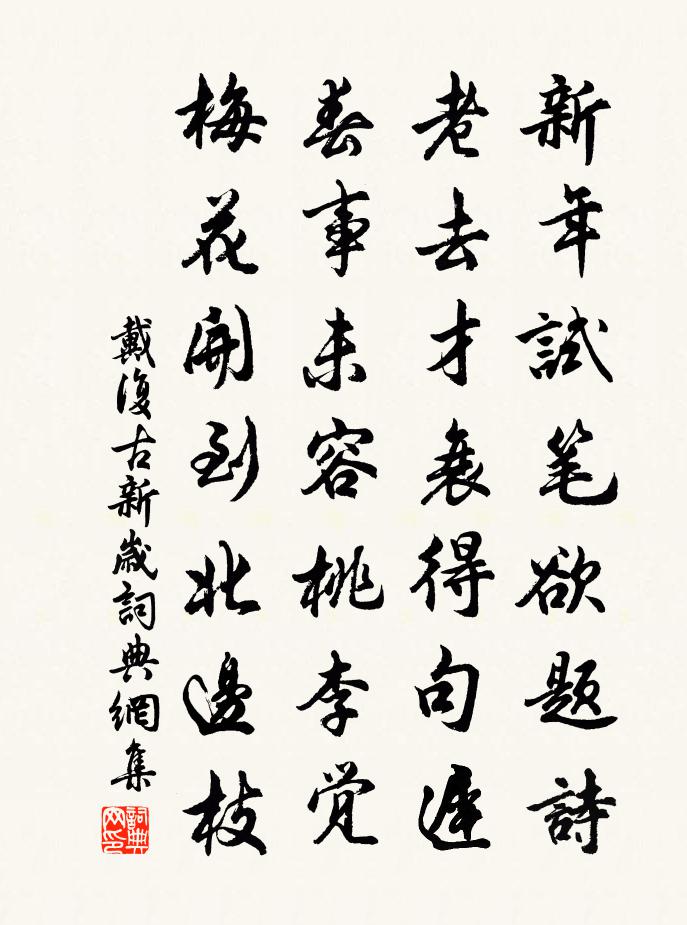 新年試笔欲题詩
老去才衰得句遲
春事未容桃李觉
梅花開到北邊枝
戴復古新歲詞典網集
詞典网印